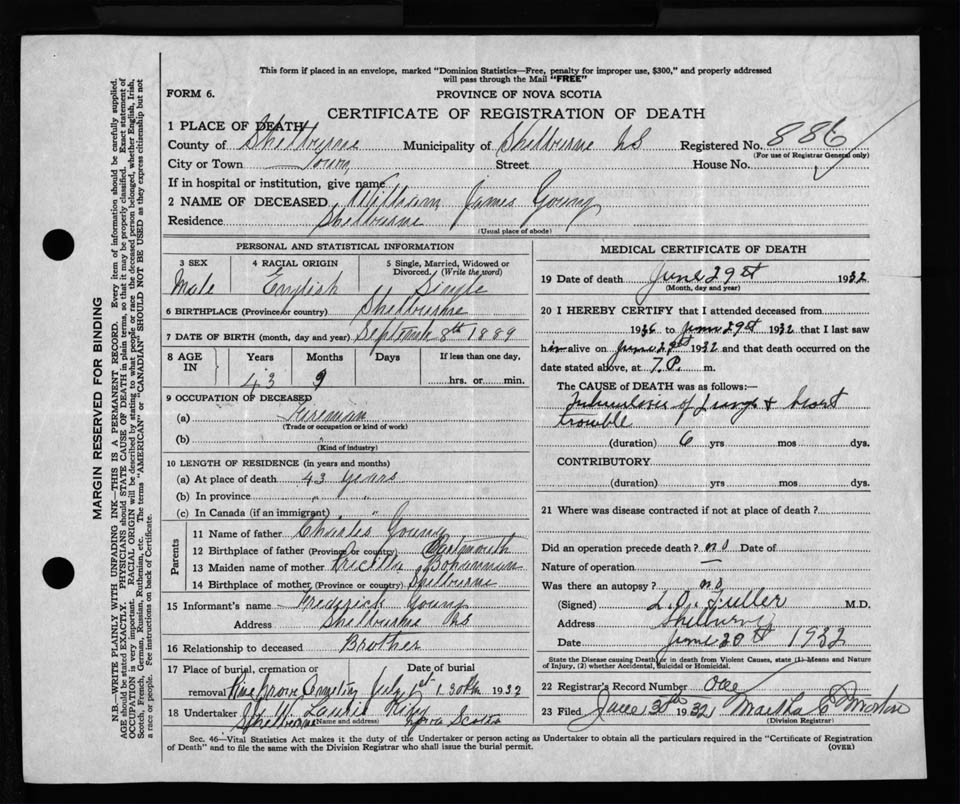 This form if placed in an envelope, marked "Dominion Statistics—Free, penalty for improper use, $300," and properly addressed
will pass through the Mail "FREE"
FORM 6.
PROVINCE OF NOVA SCOTIA
CERTIFICATE OF REGISTRATION OF DEATH
1 PLACE OF DEATH
County of Shelburne Municipality of Shelburne NS Registered No. 886
(For use of Registrar General only)
City or Town Town Street House No.
If in hospital or institution, give name
2 NAME OF DECEASED William James Young
Residence Shelburne
(Usual place of abode)
PERSONAL AND STATISTICAL INFORMATION
3 SEX
Male
4 RACIAL ORIGIN
English
5 Single, Married, Widowed or
Divorced. (Write the word)
Single
6 BIRTHPLACE (Province or country) Shelburne
7 DATE OF BIRTH (month, day and year) September 8th 1889
8 AGE IN
Years Months Days If less than one day,
43 9 hrs. or min.
9 OCCUPATION OF DECEASED
(a) Fireman
(Trade or occupation or kind of work)
(b)
(Kind of industry)
10 LENGTH OF RESIDENCE (in years and months)
(a) At place of death 43 years
(b) In province " "
(c) In Canada (if an immigrant) " "
Parents
11 Name of father Charles Young
12 Birthplace of father (Province or country) Dartmouth
13 Maiden name of mother Bohannan
14 Birthplace of mother (Province or country) Shelburne
15 Informant's name Frederick Young
Address Shelburne NS
16 Relationship to deceased Brother
17 Place of burial, cremation or
removal Pine Grove Cemetery
Date of burial
July 1st 1932
18 Undertaker
Shelburne Nova Scotia
(Name and address)
MEDICAL CERTIFICATE OF DEATH
19 Date of death June 29st 1932
(Month, day and year)
20 I HEREBY CERTIFY that I attended deceased from
1926 to June 29st 1932 that I last saw
him alive on June 29st 1932 and that death occurred on the
date stated above, at 7.P. m.
The CAUSE of DEATH was as follows:—
Tuberculosis of Lungs & heart
trouble
(duration) 6 yrs mos dys.
CONTRIBUTORY
(duration) yrs mos dys.
21 Where was disease contracted if not at place of death?
Did an operation precede death? no Date of
Nature of operation —
Was there an autopsy? no
(Signed) L.O. Fuller M.D.
Address Shelburne
Date June 1932
State the Disease causing Death, or in death from Violent Causes, state (1) Means and Nature
of Injury, (2) whether Accidental, Suicidal or Homicidal.
22 Registrar's Record Number
23 Filed June 30th 1932 Martha C
(Division Registrar)
Sec. 46—Vital Statistics Act makes it the duty of the Undertaker or person acting as Undertaker to obtain all the particulars required in the "Certificate of Registration
of Death" and to file the same with the Division Registrar who shall issue the burial permit.
(OVER)
MARGIN RESERVED FOR BINDING
N.B.—WRITE PLAINLY WITH UNFADING INK—THIS IS A PERMANENT RECORD. Every item of information should be carefully supplied.
AGE should be stated EXACTLY. PHYSICIANS should STATE CAUSE OF DEATH in plain terms, so that it may be properly classified. Exact statement of
OCCUPATION is very important. RACIAL ORIGIN will be described by stating to what people or race the deceased person belonged, whether English, Irish,
Scotch, French, German, Russian, Ruthenian, etc. The terms "AMERICAN" or "CANADIAN" SHOULD NOT BE USED as they express citizenship but not
a race or people. See instructions on back of Certificate.